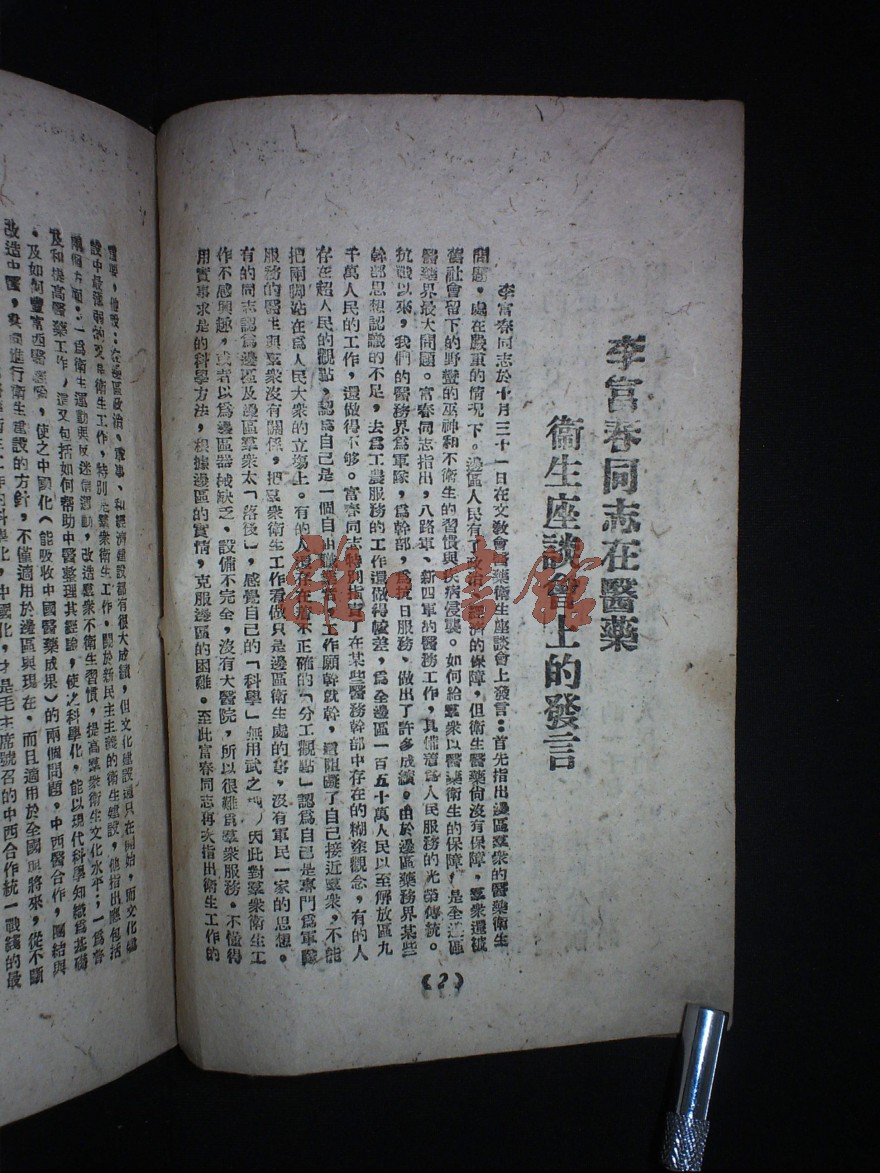 李富春同志在醫藥
衞生座談會上的發言
李富春同志於十月三十一日在文敎會醫藥衞生座談會上發言：首先指出邊區羣衆的醫藥衞生
問題，處在嚴重的情況下。邊區人民有了政治、經濟的保障，但衞生醫藥尙沒有保障，羣衆還被
舊社會留下的野蠻的巫神和不衞生的習慣與疾病侵襲。如何給羣衆以醫藥衞生的保障，是全邊區
醫藥界最大問題。富春同志指出，八路軍、新四軍的醫務工作，具備着爲人民服務的光榮傳統。
抗戰以來，我們的醫務界爲軍隊，爲幹部，爲抗日服務、做出了許多成績。由於邊區藥務界某些
幹部思想認識的不足，去爲工農服務的工作還做得較差，爲全邊區一百五十萬人民以至解放區九
千萬人民的工作，還做得不够。富春同志特別指責了在某些醫務幹部中存在的糊塗觀念，有的人
存在超人民的觀點，認爲自己是一個自由職業者，工作願幹就幹，這阻礙了自己接近羣衆，不能
把兩脚站在爲人民大衆的立塲上。有的人還存在着不正確的「分工觀點」認爲自己是專門爲軍隊
服務的醫生與羣衆沒有關係，把羣衆衞生工作看做只是邊區衞生處的事，沒有軍民一家的思想。
有的同志認爲邊區及邊區羣衆太「落後」，感覺自己的「科學」無用武之地，因此對羣衆衞生工
作不感興趣，或者以爲邊區器械缺乏，設備不完全，沒有大醫院，所以很難爲羣衆服務。不懂得
用實事求是的科學方法，根據邊區的實情，克服邊區的困難。至此富春同志再次指出衞生工作的
（2）
重要，他說：在邊區政治、軍事、和經濟建設都有很大成績，但文化建設還只在開始，而文化建
設中最薄弱的又是衞生工作，特別是羣衆衞生工作，關於新民主主義的衞生建設，他指出應包括
兩個方面：一爲衞生運動與反迷信運動，改造羣衆不衞生習慣，提高羣衆衞生文化水平；一爲普
及和提高醫藥工作，這又包括如何帮助中醫整理其經驗，使之科學化，能以現代科學知識爲基礎
，及如何豐富西醫經驗，使之中國化（能吸收中國醫藥成果）的兩個問題。中西醫合作，團結與
改造中醫，共同進行衞生建設的方針，不僅適用於邊區與現在，而且適用於全國與將來，從不斷
工作的科學化，中國化，才是毛主席號召的中西合作統一戰綫的最
雜·書館